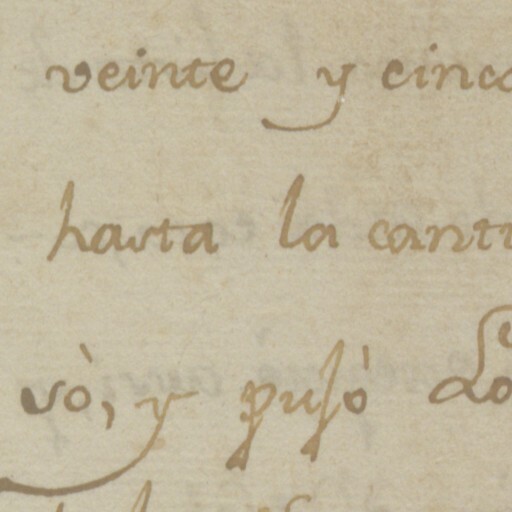 veinte y cinco
hasta la canti
vò, y pusó